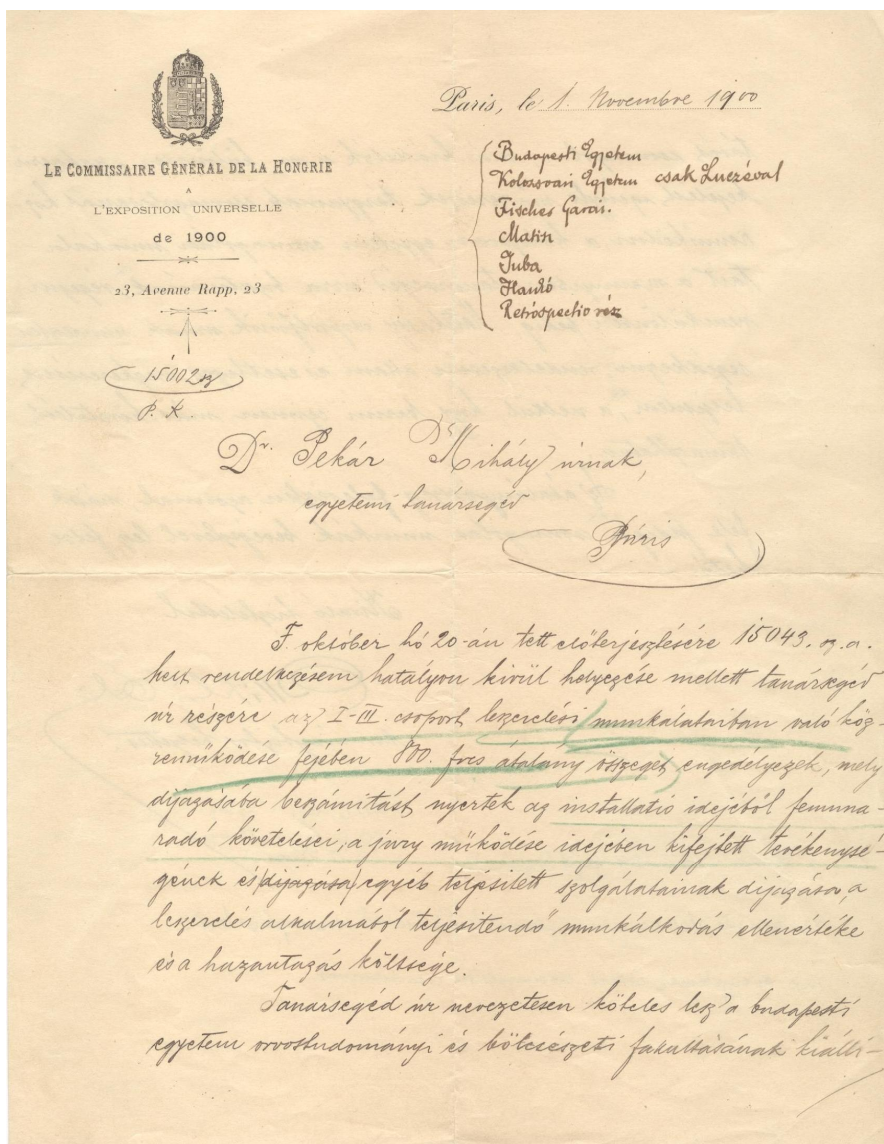 LE COMMISSAIRE GÉNÉRAL DE LA HONGRIE
A
L'EXPOSITION UNIVERSELLE
de 1900
23, Avenue Rapp, 23
15002
P. K.
Paris, le 1. Novembre 1900
Budapesti Egyetem
Kolozsvári Egyetem csak Luczéval
Fischer Garai.
Juba
Hankó
Retrospectio rész
Dr. Pekár Mihály úrnak,
egyetemi tanársegéd
Páris
F. október hó 20-án tett előterjesztésére 15043. sz. a.
kelt rendelkezésem hatályon kivül helyezése mellett tanársegéd
úr részére az I-III. csoport leszerelési munkálataiban való köz-
reműködése fejében 800. frcs átalány összeget engedélyezek, mely
dijazásába beszámitást nyertek az installatió idejéből fennma-
radó követelései, a jury működése idejében kifejtett tevékenysé-
gének és (dijazása) egyéb teljesitett szolgálatainak dijazása, a
leszerelés alkalmából teljesitendő munkálkodás ellenértéke
és a hazautazás költsége.
Tanársegéd úr nevezetesen köteles lesz a budapesti
egyetem orvostudományi és bölcsészeti fakultásának kiálli-